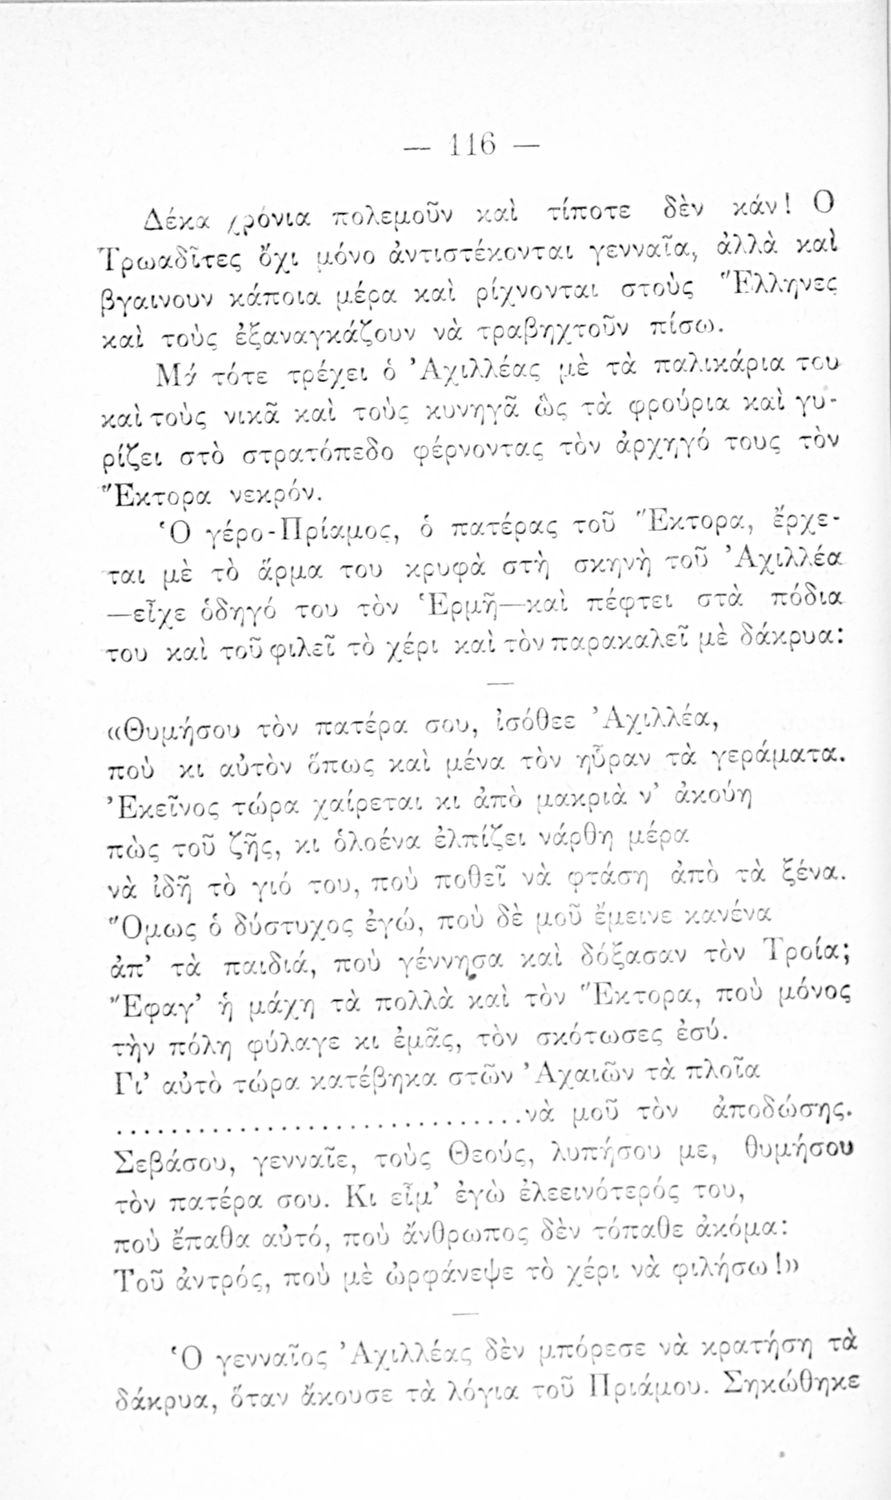 — 116 —
Δέκα χρόνια πολεμοῦν καὶ τίποτε δὲν κάν! Ο
Τρωαδῖτες ὄχι μόνο ἀντιστέκονται γενναῖα, ἀλλὰ καὶ
βγαινουν κάποια μέρα καὶ ρίχνονται στοὺς Ἕλληνες
καὶ τοὺς ἐξαναγκάζουν νὰ τραβηχτοῦν πίσω.
Μὰ τότε τρέχει ὁ Ἀχιλλέας μὲ τὰ παλικάρια του
καὶ τοὺς νικᾶ καὶ τοὺς κυνηγᾶ ὣς τὰ φρούρια καὶ γυ-
ρίζει στὸ στρατόπεδο φέρνοντας τὸν ἀρχηγό τους τὸν
Ἕκτορα νεκρόν.
Ὁ γέρο-Πρίαμος, ὁ πατέρας τοῦ Ἕκτορα, ἔρχε-
ται μὲ τὸ ἅρμα του κρυφὰ στὴ σκηνὴ τοῦ Ἀχιλλέα
—εἶχε ὁδηγό του τὸν Ἑρμῆ—καὶ πέφτει στὰ πόδια
του καὶ τοῦ φιλεῖ τὸ χέρι καὶ τὸν παρακαλεῖ μὲ δάκρυα:
—
«Θυμήσου τὸν πατέρα σου, ἰσόθεε Ἀχιλλέα,
ποὺ κι αὐτὸν ὅπως καὶ μένα τὸν ηὗραν τὰ γεράματα.
Ἐκεῖνος τώρα χαίρεται κι ἀπὸ μακριὰ ν’ ἀκούη
πὼς τοῦ ζῆς, κι ὁλοένα ἐλπίζει νάρθη μέρα
νὰ ἰδῆ τὸ γιό του, ποὺ ποθεῖ νὰ φτάση ἀπὸ τὰ ξένα.
Ὅμως ὁ δύστυχος ἐγώ, ποὺ δὲ μοῦ ἔμεινε κανένα
ἀπ’ τὰ παιδιά, ποὺ γέννησα καὶ δόξασαν τὸν Τροία;
Ἔφαγ’ ἡ μάχη τὰ πολλὰ καὶ τὸν Ἕκτορα, ποὺ μόνος
τὴν πόλη φύλαγε κι ἐμᾶς, τὸν σκότωσες ἐσύ.
Γι’ αὐτὸ τώρα κατέβηκα στῶν Ἀχαιῶν τὰ πλοῖα
..............................νὰ μοῦ τὸν ἀποδώσης.
Σεβάσου, γενναῖε, τοὺς Θεούς, λυπήσου με, θυμήσου
τὸν πατέρα σου. Κι εἶμ’ ἐγὼ ἐλεεινότερός του,
ποὺ ἔπαθα αὐτό, ποὺ ἄνθρωπος δὲν τόπαθε ἀκόμα:
Τοῦ ἀντρός, ποὺ μὲ ὠρφάνεψε τὸ χέρι νὰ φιλήσω!»
—
Ὁ γενναῖος Ἀχιλλέας δὲν μπόρεσε νὰ κρατήση τὰ
δάκρυα, ὅταν ἄκουσε τὰ λόγια τοῦ Πριάμου. Σηκώθηκε